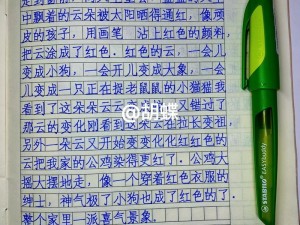 中飘着的云朵被太阳晒得通红，像顽
皮的孩子，用画笔　沾上红色的颜料，
把云涂成了红色．红色的云，一会儿
变成小狗，一会开儿变成大象，一会
儿变成一只正在捉老鼠的小猫猫我
看到了这朵朵云云
那云的变化刚看到这朵
另外一朵云又开始变变化化红红色的
云把我家的公鸡染得更红了．公鸡大
摇大摆地走，像一个穿着红色衣服的
绅士，神气极了小狗也成了红色的了．
整个家里一派喜气景象．
@胡蝶
STABILO EASYbuddy